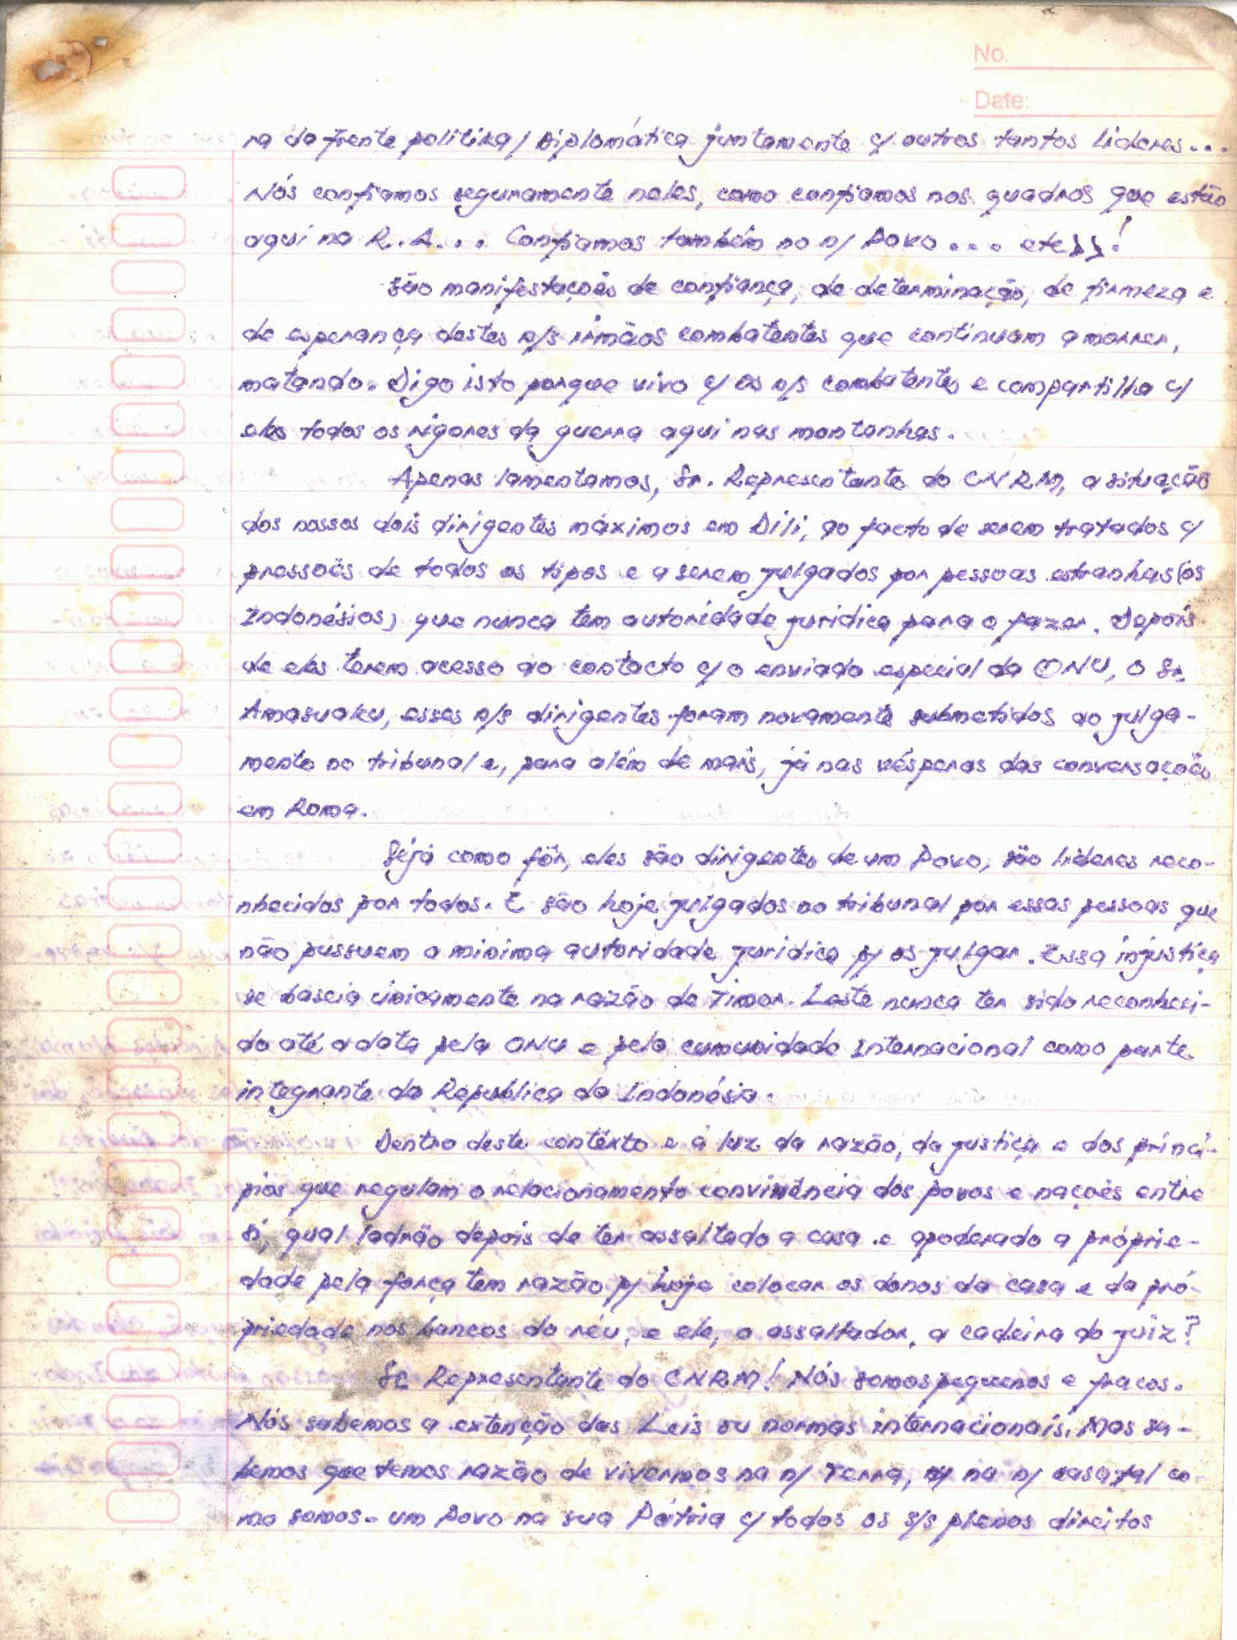 No.
Date:
ra da frente politika/Diplomática juntamente c/ outros tantos líderes...
Nós confiamos seguramente neles, como confiamos nos quadros que estão
aqui na R.A... Confiamos também no n/ Povo... etc
são manifestações de confiança, de determinação, de firmeza e
de esperança destes n/s irmãos combatentes que continuam a morrer,
matando. Digo isto porque vivo c/ os n/s combatentes e compartilho c/
eles todos os rigores da guerra aqui nas montanhas.
Apenas lamentamos, Sr. Representante do CNRM, a situação
dos nossos dois dirigentes máximos em Dili, ao facto de serem tratados c/
pressoẽs de todos os tipos e a serem julgados por pessoas estranhas (os
Indonésios) que nunca têm autoridade jurídica para o fazer. Depois
de eles terem acesso ao contacto c/ o enviado especial da ONU, o Sr.
Amasuaku, esses n/s dirigentes foram novamente submetidos ao julga-
mento no tribunal e, para além de mais, já nas vésperas das conversaçoẽs
em Roma.
Sejá como fôr, eles são dirigentes de um Povo, são líderes reco-
nhecidos por todos. E são hoje julgados no tribunal por essas pessoas que
não pussuem a mínima autoridade jurídica p/ os julgar. Essa injustiça
se baseia únicamente na razão de Timor. Leste nunca ter sido reconheci-
do até a data pela ONU e pela cumunidade Internacional como parte
integrante da República da Indonésia.
Dentro deste contêxto e à luz da razão, da justiça e dos princí-
pios que regulam o relacionamento convivência dos povos e naçoẽs entre
si, qual ladrão depois de ter assaltado a casa e apoderado a próprie-
dade pela força tem razão p/ hoje colocar os donos da casa e da pró-
priedade nos bancos do réu, e ele, o assaltador, a cadeira do juiz?
Sr. Representante do CNRM! Nós somos pequenos e fracos.
Nós sabemos a extenção das Leis ou normas internacionais. Mas sa-
bemos que temos razão de vivermos na n/ Terra, na n/ casa, tal co-
mo somos - um Povo na sua Pátria c/ todos os s/s plenos direitos